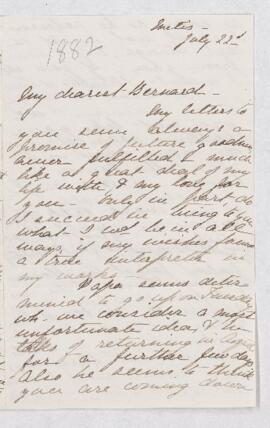 Metis -
July 22d
1882
My dearest Bernard -
My letters to
you seem always a
promise of future goodness
never fulfilled - much
like a great deal of my
life with & my love for
you - Only in part, do
I succeed in being to you
what I wd. be in all
ways, if my wishes found
a true interpreter in
my works -
Papa seems deter
mined to go up on Sunday
wh. we consider a most
unfortunate idea, & he
talks of returning in
for a further few days
also he seems to think
you are coming down